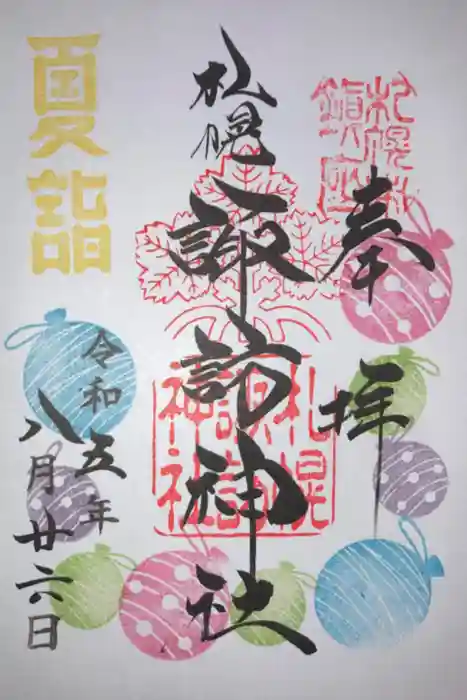 奉拝
札幌諏訪神社
夏詣
令和五年
八月廿六日
札幌
諏訪
神社